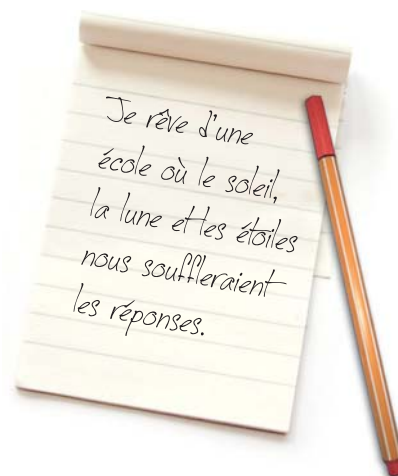 Je rêve d'une
école où le soleil,
la lune et les étoiles
nous souffleraient
les réponses.